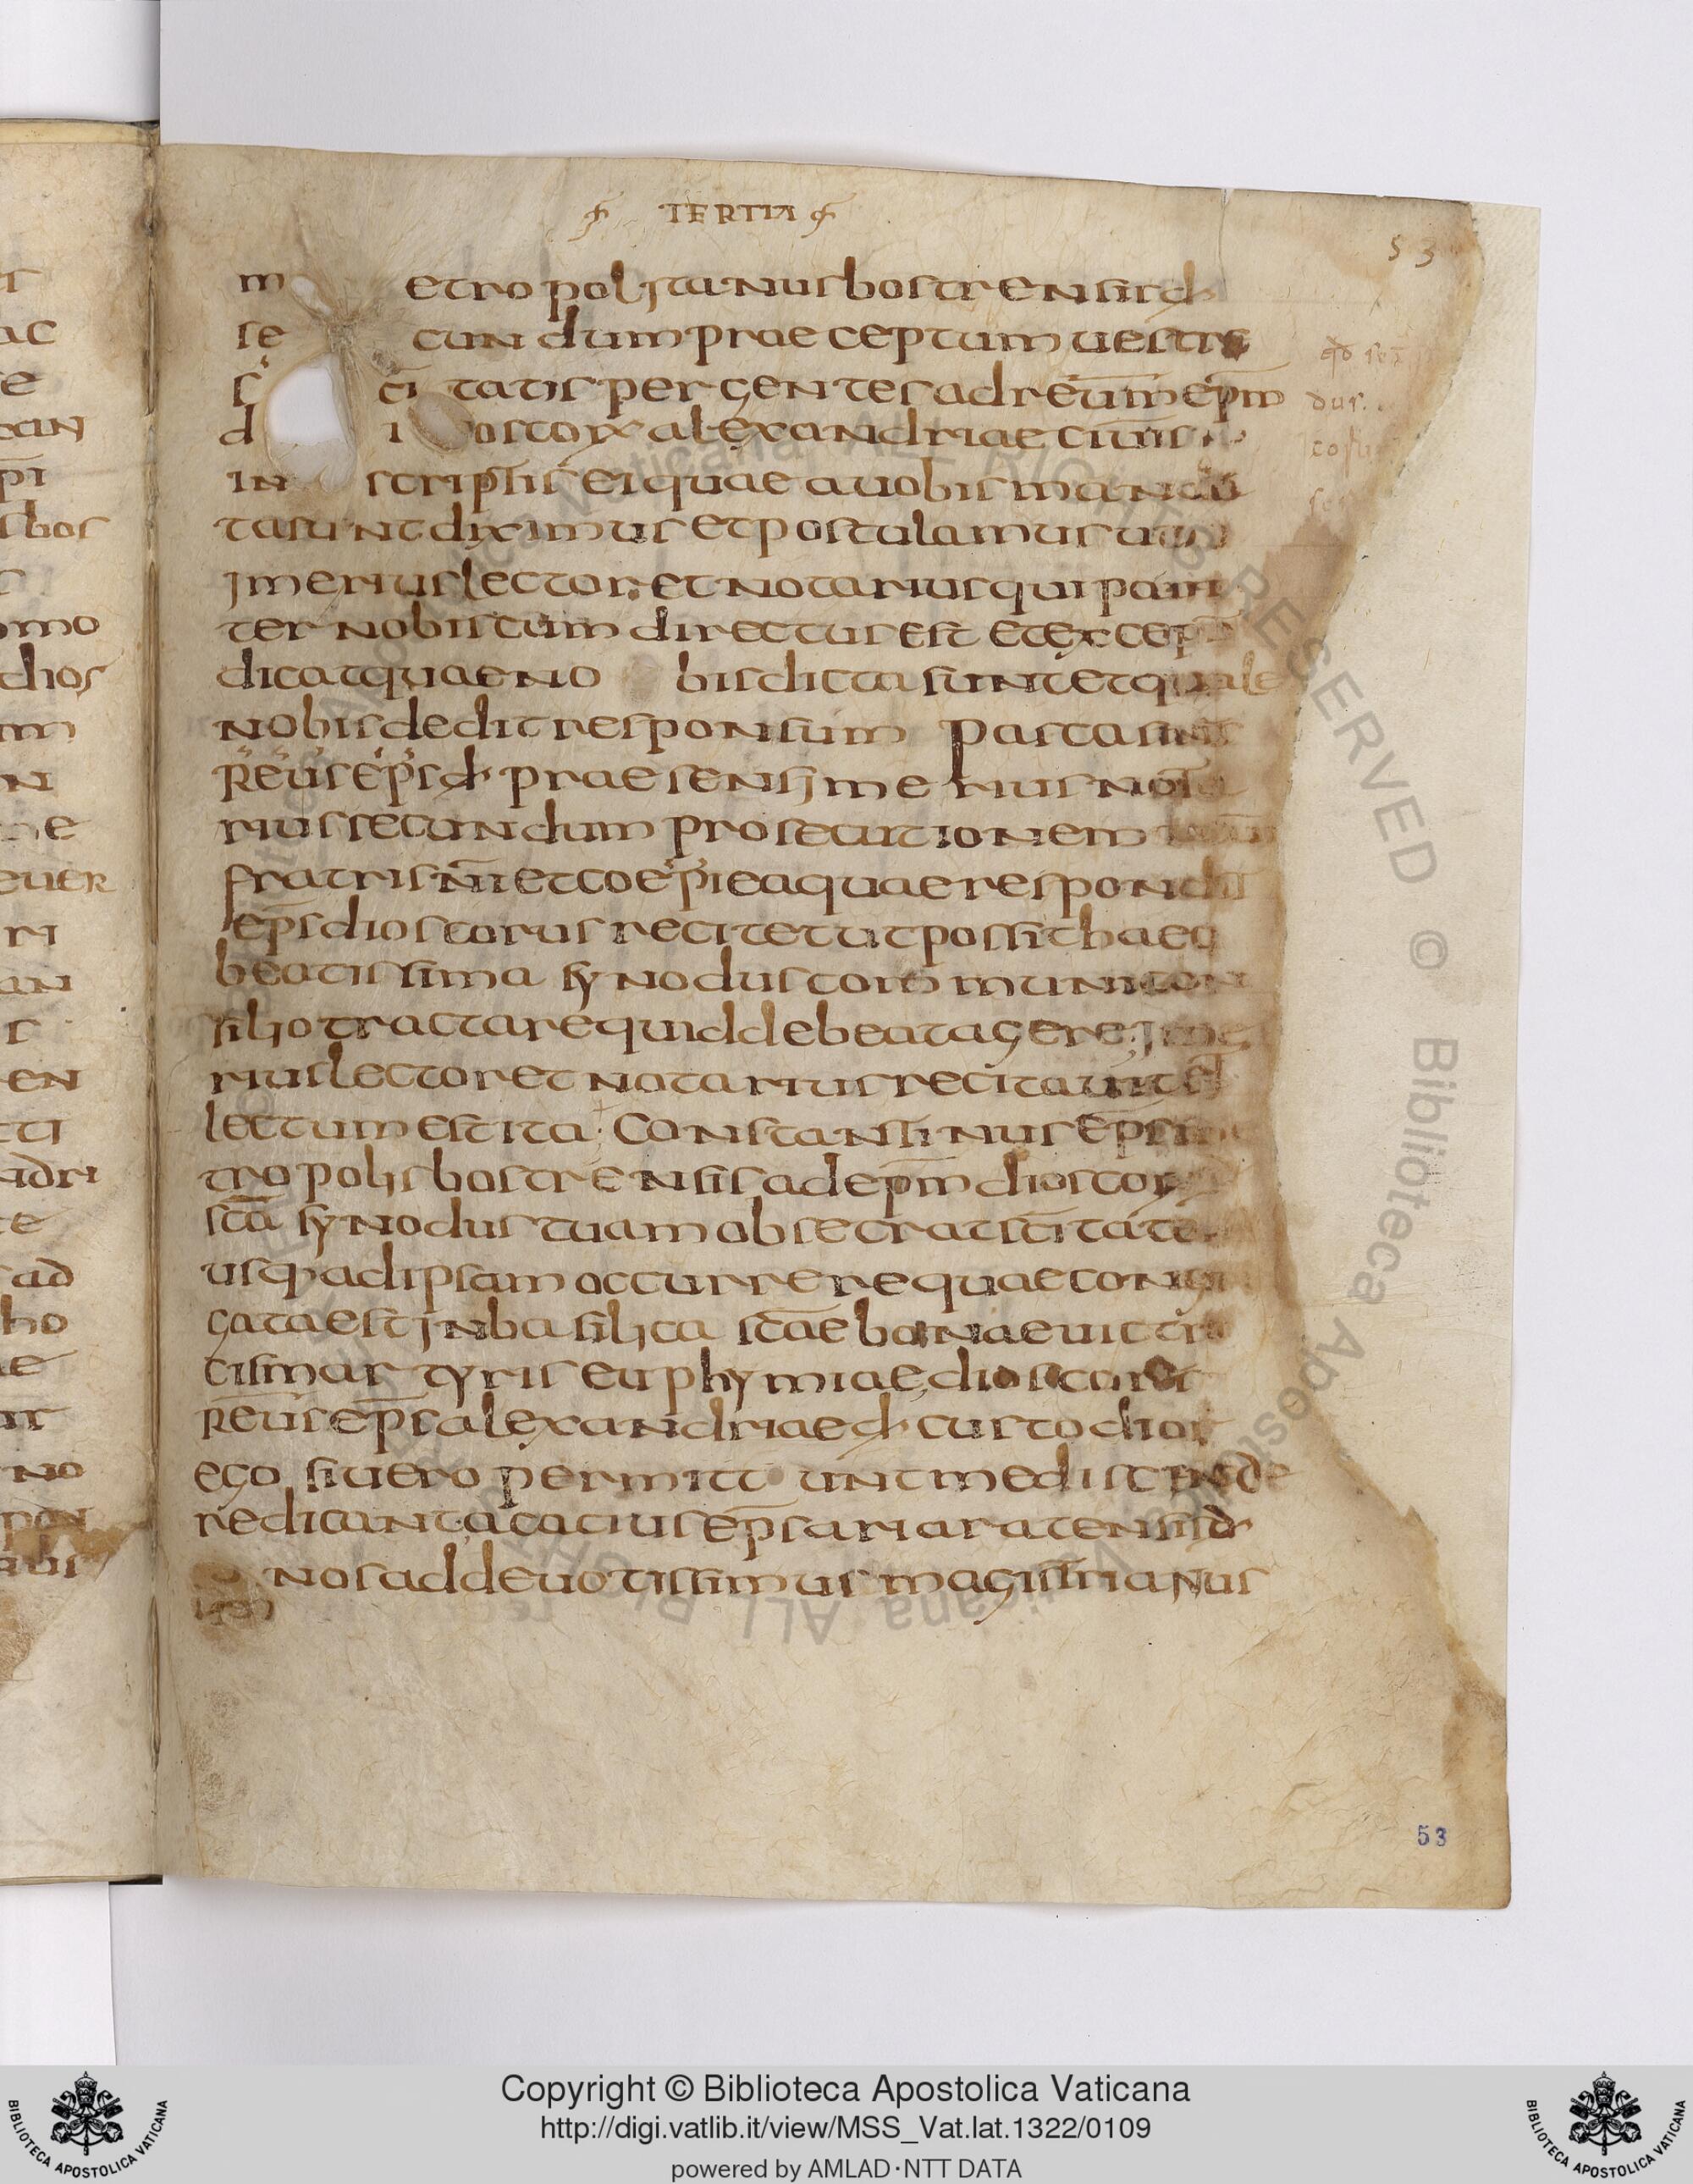 TERTIA
53
metropolitanus bostrensis d̄
secundum praeceptum vestre
sc̄itatis pergentes ad reūm ep̄m
dioscor alexandriae civis
in scriptis ei quae a vobis manda
ta sunt diximus et postulamus ut
imerius lector et notarius qui pari
ter nobiscum directus est et excep
dicat quae nobis dicta sunt et quale
nobis dedit responsum pascasinus
Reūs ep̄s d̄ praesens imerius nota
rius secundum prosecutionem
fratris n̄i et coep̄i ea quae respondit
ep̄s dioscorus recitet ut possit haec
beatissima synodus communi con
silio tractare quid debeat agere ime
rius lector et notarius recitavit et
lectum est ita Constantinus ep̄s me
tropolis bostrensis ad ep̄m dioscor
sc̄a synodus tuam obsecrat sc̄itate
usq; ad ipsam occurrere quae congre
gata est in basilica sc̄ae bonae victri
cis martyris euphymiae dioscorus
Reūs ep̄s alexandriae d̄ custodior
ego si vero permittunt me discende
re dicant acacius ep̄s ariaratensis d̄
nos ad devotissimus magistrianus
53
Copyright © Biblioteca Apostolica Vaticana
http://digi.vatlib.it/view/MSS_Vat.lat.1322/0109
powered by AMLAD·NTT DATA
BIBLIOTECA APOSTOLICA VATICANA
BIBLIOTECA APOSTOLICA VATICANA